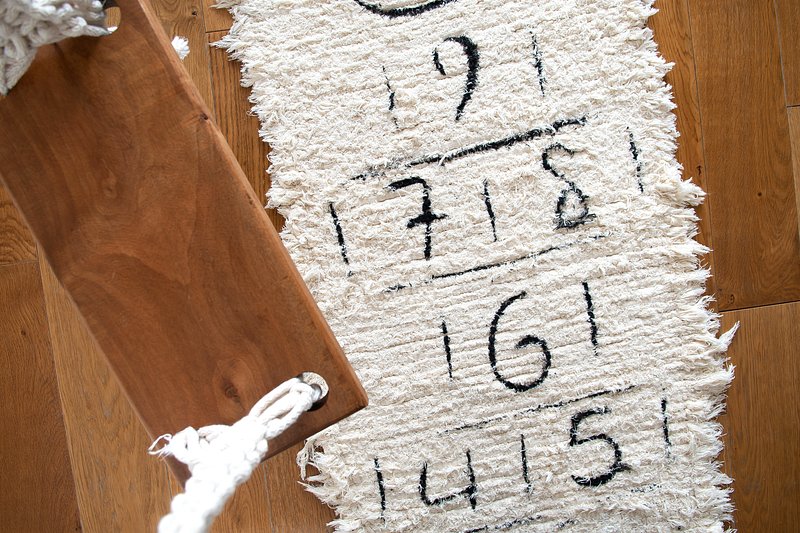 9
7 8
6
4 5